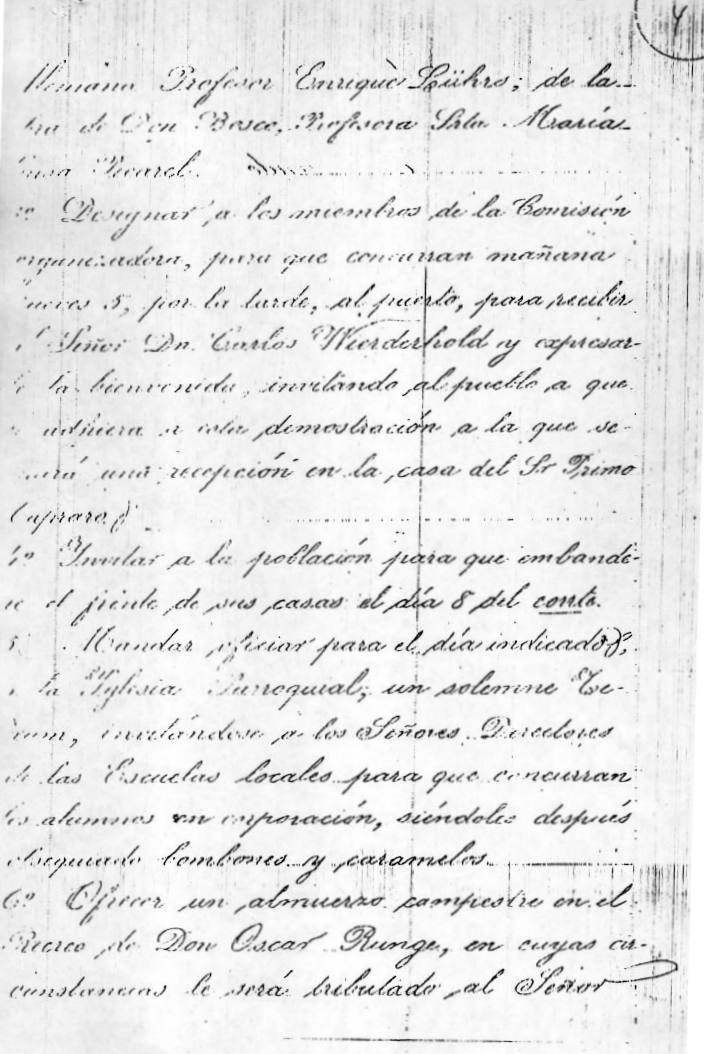 4
Alemana Profesor Enrique Lührs; de la
de Don Bosco, Profesora Srta María
Luisa
Designar a los miembros de la Comisión
organizadora, para que concurran mañana
jueves 5, por la tarde, al puerto, para recibir
al Señor Dn. Carlos Wierderhold y expresar-
le la bienvenida, invitando al pueblo a que
se adhiera a esta demostración a la que se-
una recepción en la casa del Sr Primo
Capraro
4º Invitar a la población para que embande-
re el frente de sus casas el día 8 del corrte.
5º Mandar oficiar para el día indicado,
la Yglesia Parroquial, un solemne Te-
deum, invitándose a los Señores Directores
de las Escuelas locales para que concurran
los alumnos en corporación, siéndoles después
obsequiado bombones y caramelos.
6º Ofrecer un almuerzo campestre en el
Recreo de Don Oscar Runge, en cuyas cir-
cunstancias le será tributado al Señor